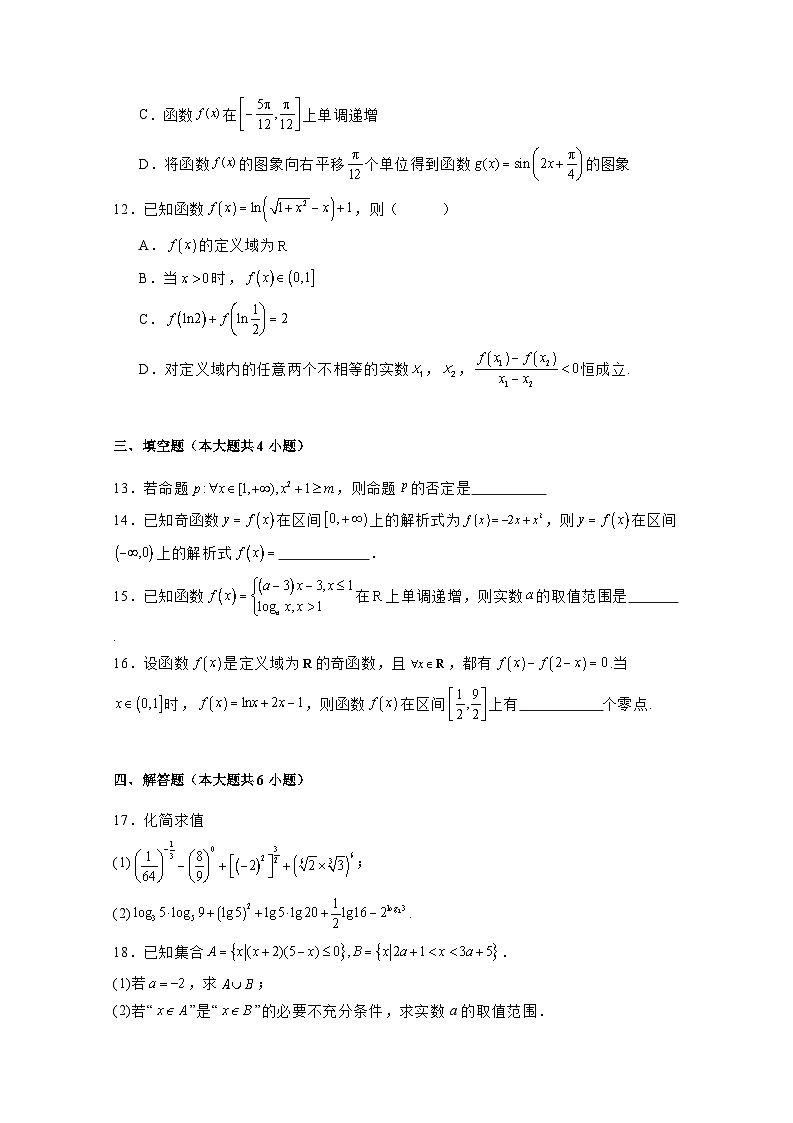 C．函数 f(x) 在[-5π/12, π/12]上单调递增
D．将函数 f(x) 的图象向右平移 π/12 个单位得到函数 g(x)=sin(2x+π/4) 的图象
12．已知函数 f(x)=ln(√(1+x²)-x)+1，则（　　）
A．f(x)的定义域为 R
B．当 x>0时，f(x)∈(0,1]
C．f(ln2)+f(ln 1/2)=2
D．对定义域内的任意两个不相等的实数 x₁，x₂，(f(x₁)-f(x₂))/(x₁-x₂)<0恒成立.
三、填空题（本大题共 4 小题）
13．若命题 p:∀x∈[1,+∞),x²+1≥m，则命题 p 的否定是__________
14．已知奇函数 y=f(x)在区间[0,+∞)上的解析式为 f(x)=-2x+x²，则 y=f(x)在区间
(-∞,0)上的解析式 f(x)=____________．
15．已知函数 f(x)={(a-3)x-3,x≤1; logₐx,x>1 在 R 上单调递增，则实数 a 的取值范围是_______
.
16．设函数 f(x)是定义域为 R 的奇函数，且 ∀x∈R，都有 f(x)-f(2-x)=0.当
x∈(0,1]时，f(x)=lnx+2x-1，则函数 f(x)在区间[1/2,9/2]上有___________个零点.
四、解答题（本大题共 6 小题）
17．化简求值
(1)(1/64)^(-1/3)-(8/9)^0+[(-2)²]^(3/2)+(∜2×∛3)^6；
(2)log₃5·log₅9+(lg5)²+lg5·lg20+1/2 lg16-2^(log₂3)．
18．已知集合 A={x|(x+2)(5-x)≤0},B={x|2a+1<x<3a+5}．
(1)若 a=-2，求 A∪B；
(2)若“x∈A”是“x∈B”的必要不充分条件，求实数 a 的取值范围．